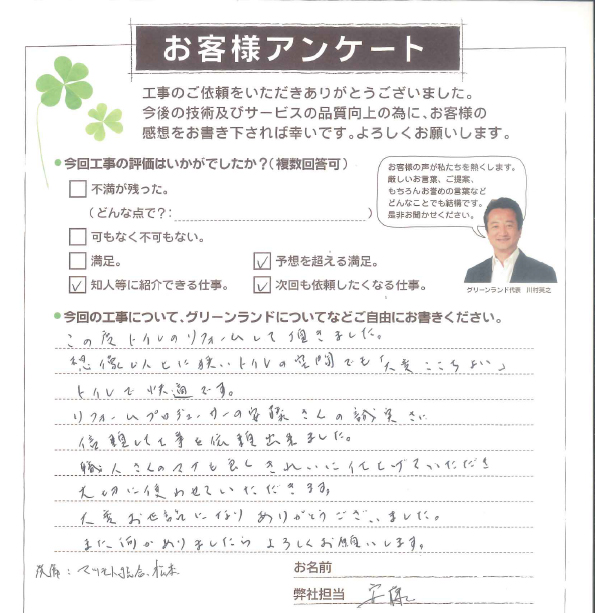 お客様アンケート
工事のご依頼をいただきありがとうございました。
今後の技術及びサービスの品質向上の為に、お客様の
感想をお書き下されば幸いです。よろしくお願いします。
●今回工事の評価はいかがでしたか?(複数回答可)
不満が残った。
(どんな点で?: )
可もなく不可もない。
満足。
予想を超える満足。
知人等に紹介できる仕事。
次回も依頼したくなる仕事。
お客様の声が私たちを熱くします。
厳しいお言葉、ご提案、
もちろんお誉めの言葉など
どんなことでも結構です。
是非お聞かせください。
グリーンランド代表 川村英之
●今回の工事について、グリーンランドについてなどご自由にお書きください。
この度トイレのリフォームして頂きました。
想像以上に狭いトイレの空間でも「大変ここちよい」
トイレで快適です。
リフォームプロデューサーの安藤さんの誠実さに
信頼して工事を依頼出来ました。
職人さんのマナも良くきれいに仕上げていただき
大切に使わせていただきます。
大変お世話になりありがとうございました。
また何かありましたらよろしくお願いします。
設備:マツモト 松本
お名前
弊社担当 安藤